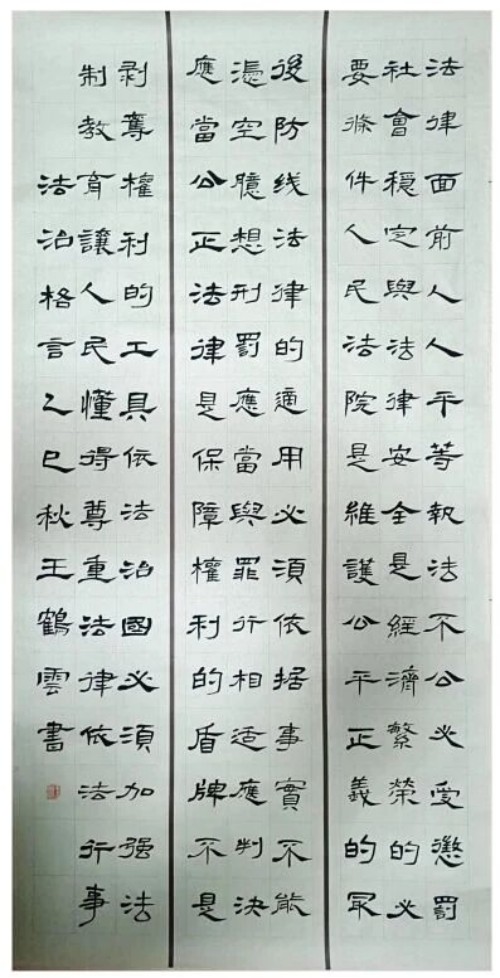 法律面前人人平等執法不公必受懲罰
社會穩定與法律安全是經濟繁榮的必
要條件人民法院是維護公平正義的最
後防线法律的適用必須依据事實不能
憑空臆想刑罰應當與罪行相适應判決
應當公正法律是保障權利的盾牌不是
剥奪權利的工具依法治國必須加强法
制教育讓人民懂得尊重法律依法行事
法治格言乙巳秋王鶴雲書